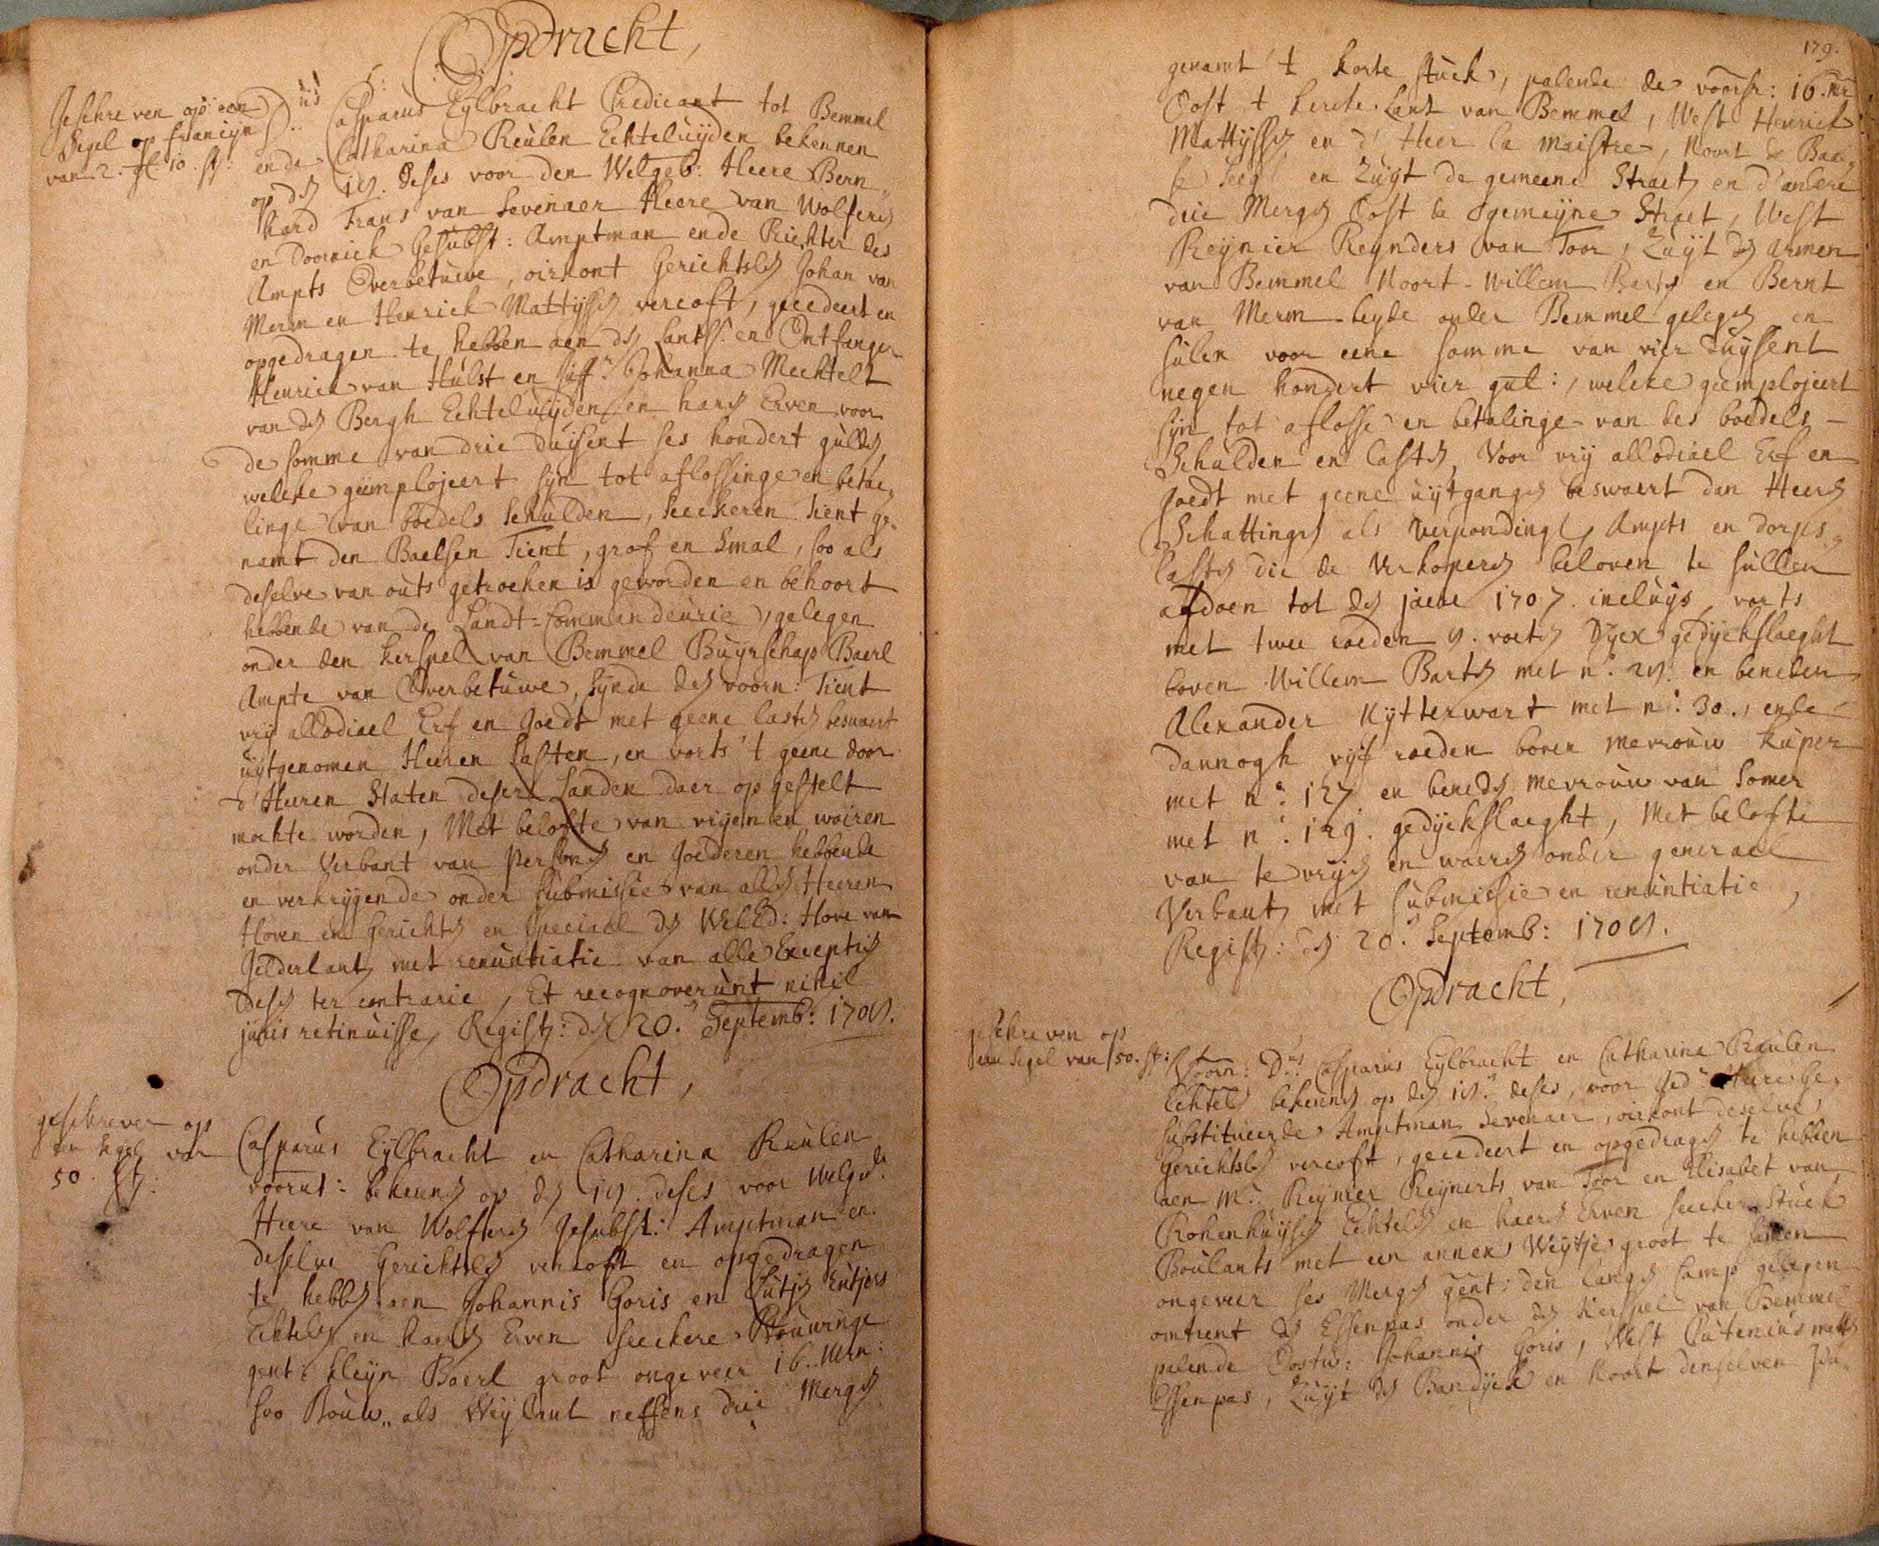 Opdracht,
Geschreven op een
Segel op francijn
van 2. gl. 10. st:
D:us Casparus Eylbracht Predicant tot Bemmel
ende Catharina Reulen Echteluijden bekennen
op den 18. deses voor den Welgeb: Heere Bern„
hard Frans van Sevenaer Heere van Wolferen
en Doornick Gesubst: Amptman ende Richter des
Ampts Overbetuwe, oirkont Gerichtsl. Johan van
Merm en Henrick Mattijssen vercoft, gecedeert en
opgedragen te hebben aen den Lants. en Ontfanger
Henrick van Hulst en Juff.r Johanna Mechtelt
van den Bergh Echteluijden en haren Erven voor
de somme van drie duisent ses hondert gulden
welcke geimplojeert sijn tot aflossinge en betae„
linge van boedels schulden, seeckeren Tient ge„
namt den Baelsen Tient, grof en smal, soo als
deselve van outs getrocken is geworden en behoort
hebbende van de Landt-Commandeurie, gelegen
onder den kerspel van Bemmel Buijrschap Baerl
Ampte van Overbetuwe, sijnde den voorn: Tient
vrij allodiael Erf en Goedt met geene lasten beswaert
uijtgenomen Heeren Lasten, en vorts 't geene door
d'Heeren Staten deser Landen daer op gestelt
mochte worden, Met belofte van vrijen en waren
onder Verbant van Persoonen en Goederen hebbende
en verkrijgende onder submissie van allen Heeren
Hoven en Gerichten en speciael den WelEd: Hove van
Gelderlant, met renuntiatie van alle Exceptien
desen ter contrarie, Et recognoverunt nihil
juris retinuisse, Regist: den 20.n Septemb: 1708.
Opdracht,
geschreven op
een Segel van
50. st:
Casparus Eylbracht en Catharina Reulen
voorn: bekennen op den 18. deses voor welged.
Heere van Wolferen Gesubst: Amptman en
deselve Gerichtsl. vercoft en opgedragen
te hebben aen Johannis Goris en
Echtel. en haeren Erven seeckere Bouwinge
gent. kleijn Baerl groot ongeveer 16. Mrn:
soo Bouw„ als Weijlant neffens drie Mergen
179.
genamt 't korte stuck, palende de voors: 16. Mr
Oost 't kercke Lant van Bemmel, West Henrick
Mattijssen en d'Heer la Maistre, Noort de
en Zuijt de gemeene Straet, en d'andere
drie Mergen Oost de gemeijne Straet, West
Reijnier Reijnders van Toor, Zuijt den armen
van Bemmel Noort Willem Barten en Bernt
van Merm beijde onder Bemmel gelegen en
sulx voor eene somme van vier duijsent
negen hondert vier gul:, welcke geimplojeert
sijn tot aflosse en betalinge van des boedels
Schulden en lasten, Voor vrij allodiael Erf en
Goedt met geene uijtgangen beswaert dan Heeren
Schattingen als Verpondinge, Ampts en dorps„
lasten die de Verkoperen beloven te sullen
afdoen tot den jaere 1707. incluijs, vorts
met twee roeden 8. voeten Dijck gedijckslaeght
boven Willem Barten met n.o 28. en beneden
Alexander Rijtterwart met n.o 30., ende
dannogh vijf roeden boven mevrouw Kuper
met n.o 127 en beneden Mevrouw van Somer
met n.o 129. gedijckslaeght, Met belofte
van te vrijen en waeren onder generael
Verbant, met submissie en renuntiatie,
Regist: den 20.n Septemb: 1708.
Opdracht,
geschreven op
een Segel van 50. st:
Voorn: D.us Casparus Eylbracht en Catharina Reulen
Echtel. bekennen op den 18.n deses, voor Ged. Heere Ge„
substitueerde Amptman Sevenaer, oirkont deselve
Gerichtsl. vercoft, gecedeert en opgedragen te hebben
aen Mr. Reijnier Reijnerts van Toor en Elisabet van
Rohenhuijsen Echtel. en haeren Erven seecker Stuck
Boulants met een annex Weijtje groot te samen
ongeveer ses Mergen gent: den langen Camp gelegen
omtrent den Essenpas onder den Kerspel van Bemmel
palende Oostw: Johannis Goris, West
Essenpas, Zuijt den Bandijck en Noort denselven